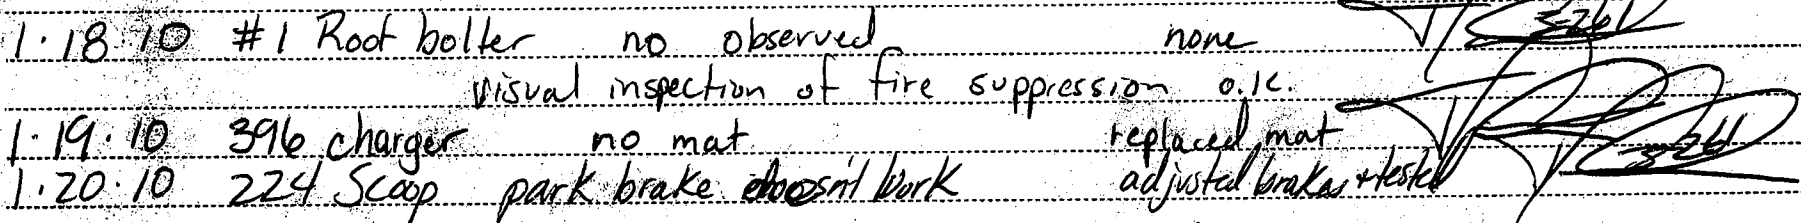 1·18·10 #1 Roof bolter no observed none
visual inspection of fire suppression o.k.
1·19·10 396 charger no mat replaced mat
1·20·10 224 Scoop park brake doesn't work adjusted brakes + tested